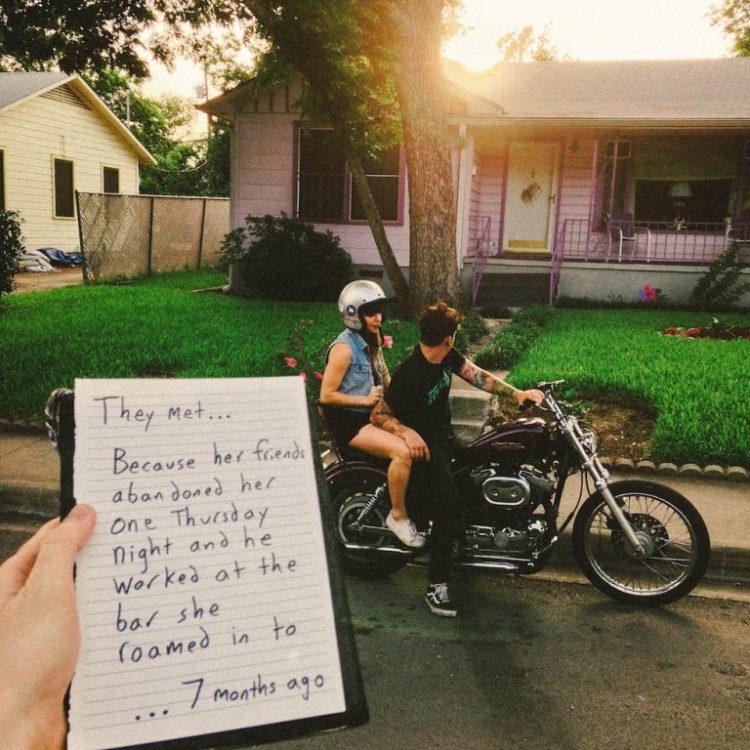 They met...
Because her friends
abandoned her
one Thursday
night and he
worked at the
bar she
roamed in to
... 7 months ago